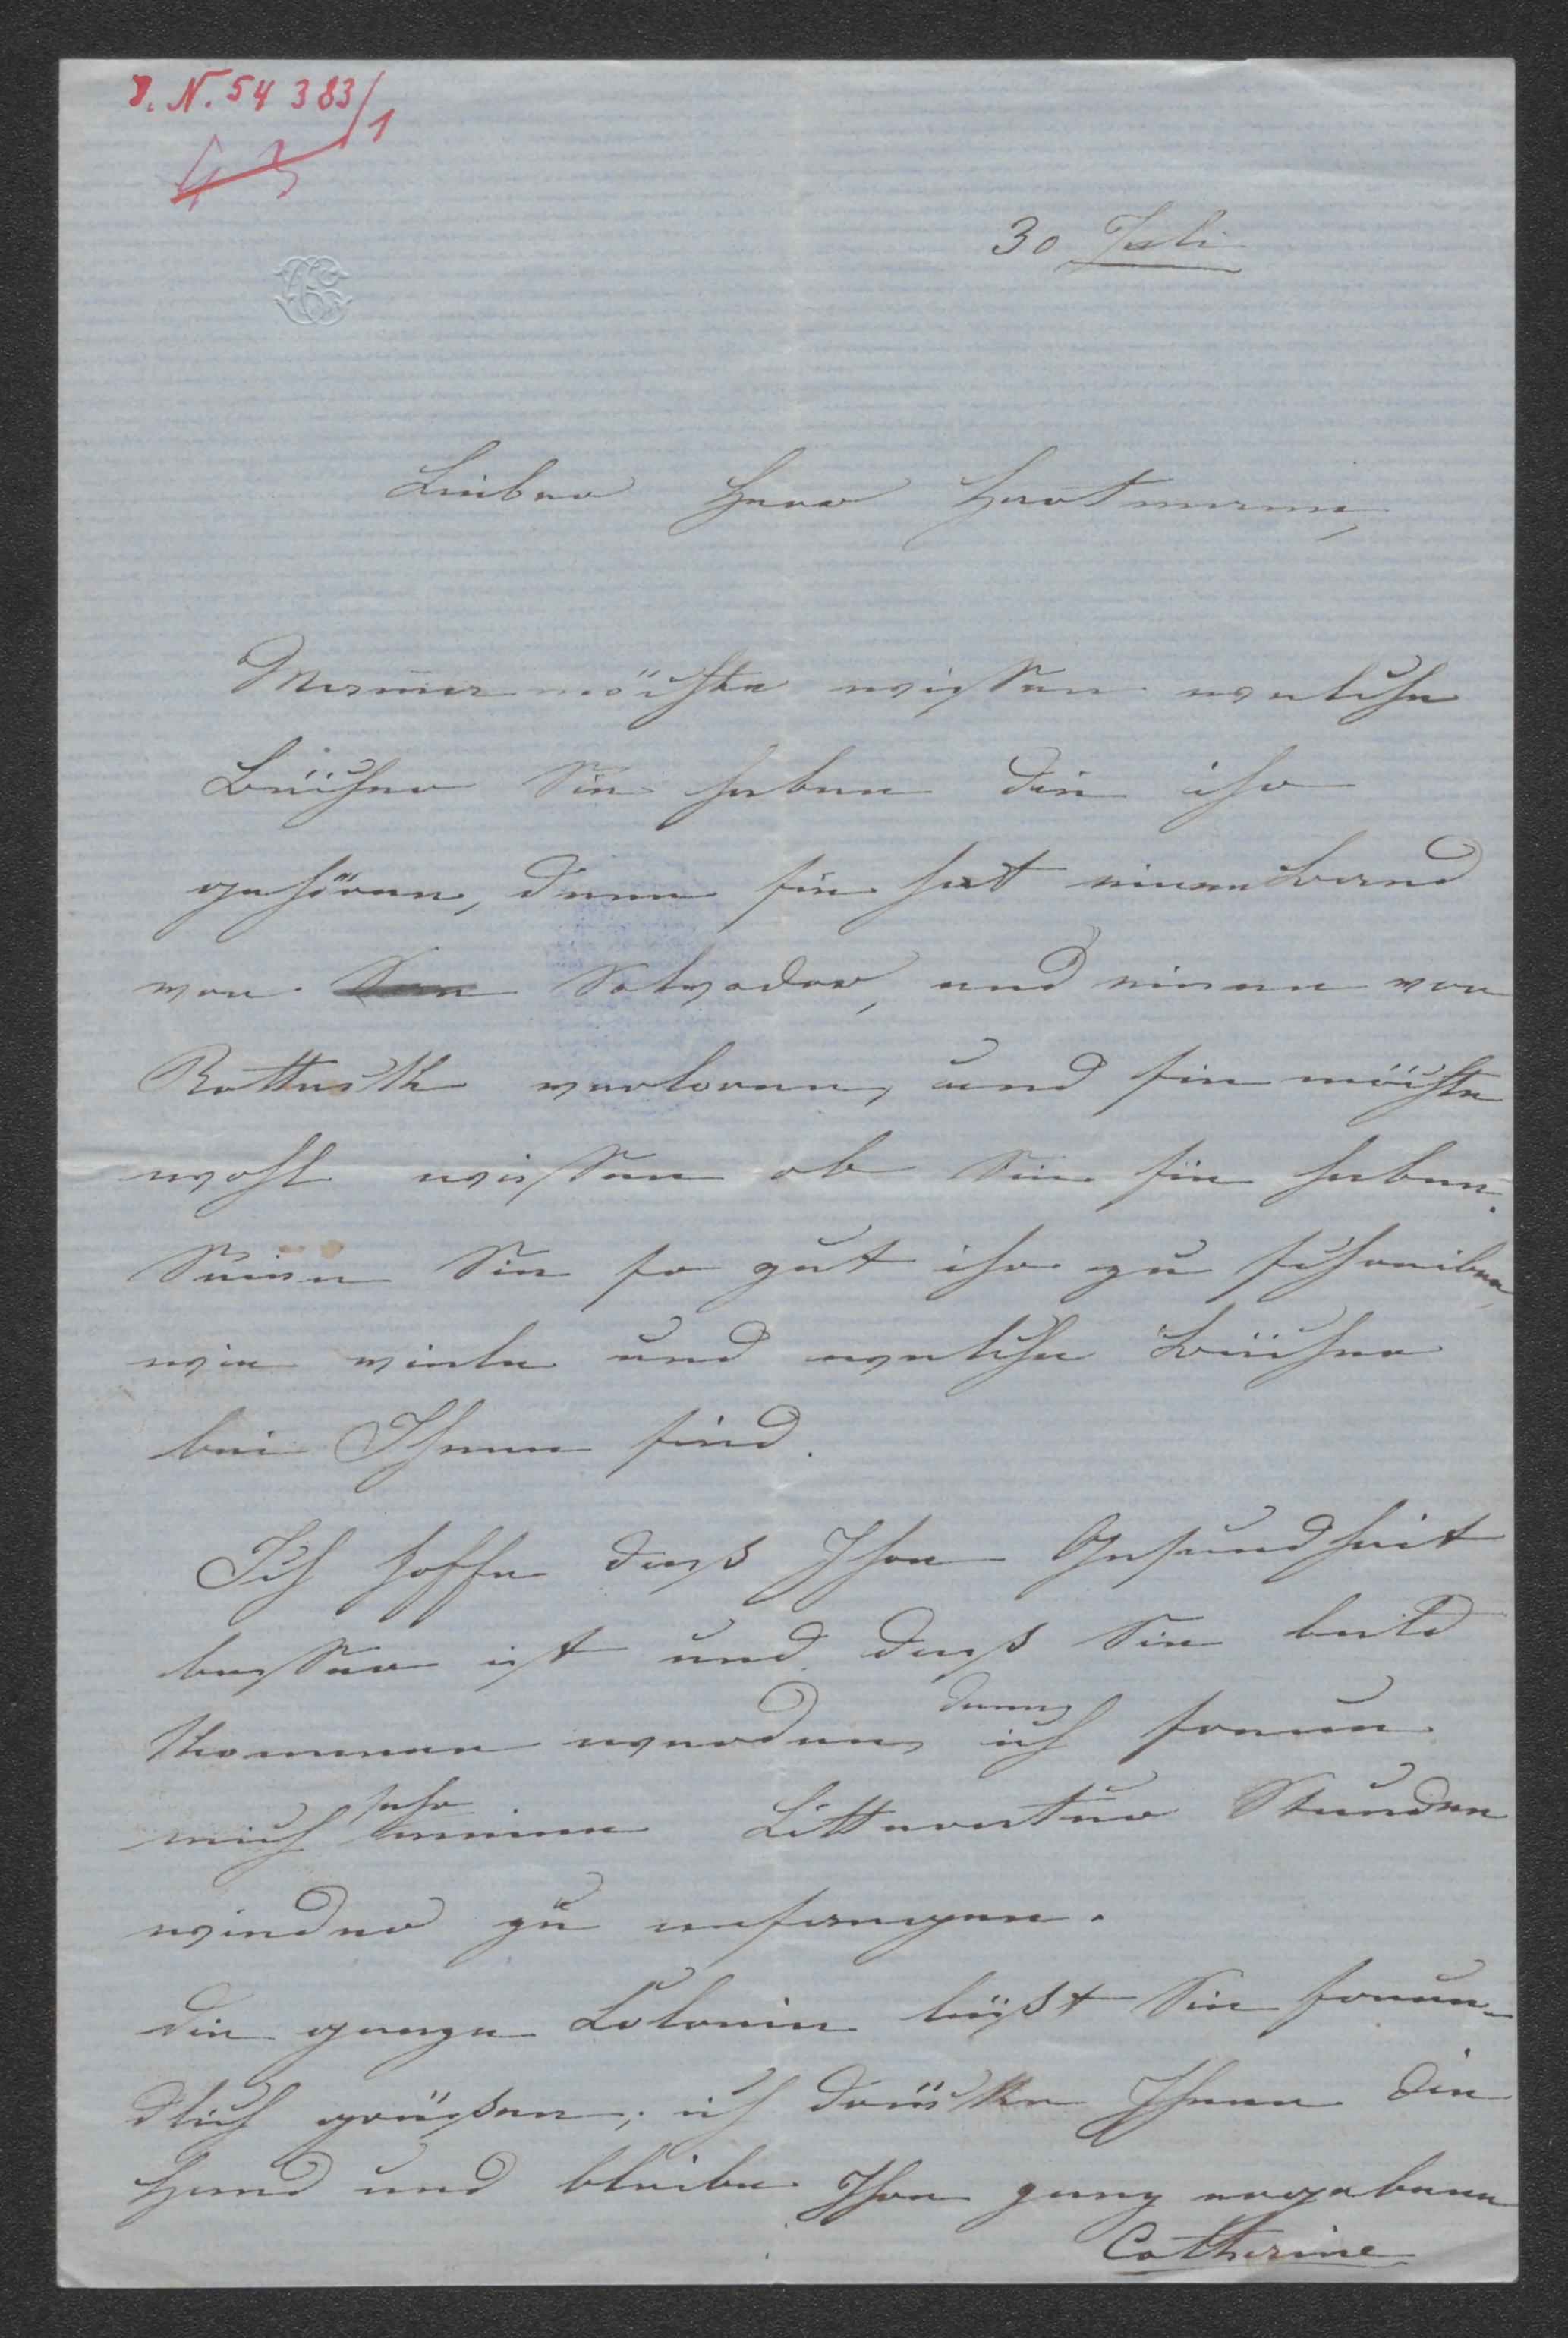 I. N. 54 383/1
43
30 Juli
Lieber Herr Hartmann,
Mama möchte wissen welche
Bücher Sie haben die ihr
gehören, denn sie hat einen Band
von Salvador, und einen von
Rotteck verloren, und sie möchte
wohl wissen ob Sie sie haben.
Seien Sie so gut ihr zu schreiben,
wie viele und welche Bücher
bei Ihnen sind.
Ich hoffe dass Ihre Gesundheit
besser ist und dass Sie bald
kommen werden, denn ich freue
mich sehr meine Litteratur Stunden
wieder zu anfangen.
Die ganze Colonie läßt Sie freun-
dlich grüßen; ich drücke Ihnen die
Hand und bleibe Ihre ganz ergebene
Catherine